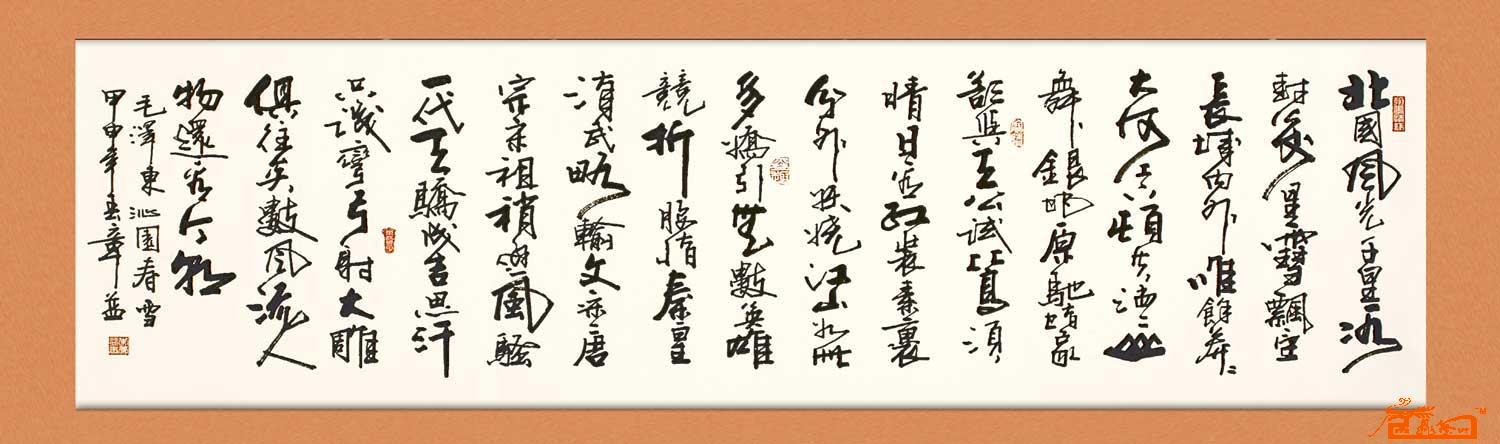 北國風光千里冰
封萬里雪飄望
長城內外唯餘莽〻
大河上下頓失滔〻山
舞銀蛇原馳蠟象
欲與天公試比高須
晴日看紅裝素裹
分外妖嬈江山如此
多嬌引無數英雄
競折腰惜秦皇
漢武略輸文采唐
宗宋祖稍遜風騷
一代天驕成吉思汗
只識彎弓射大雕
俱往矣數風流人
物還看今朝
毛澤東沁園春雪
甲申年春章